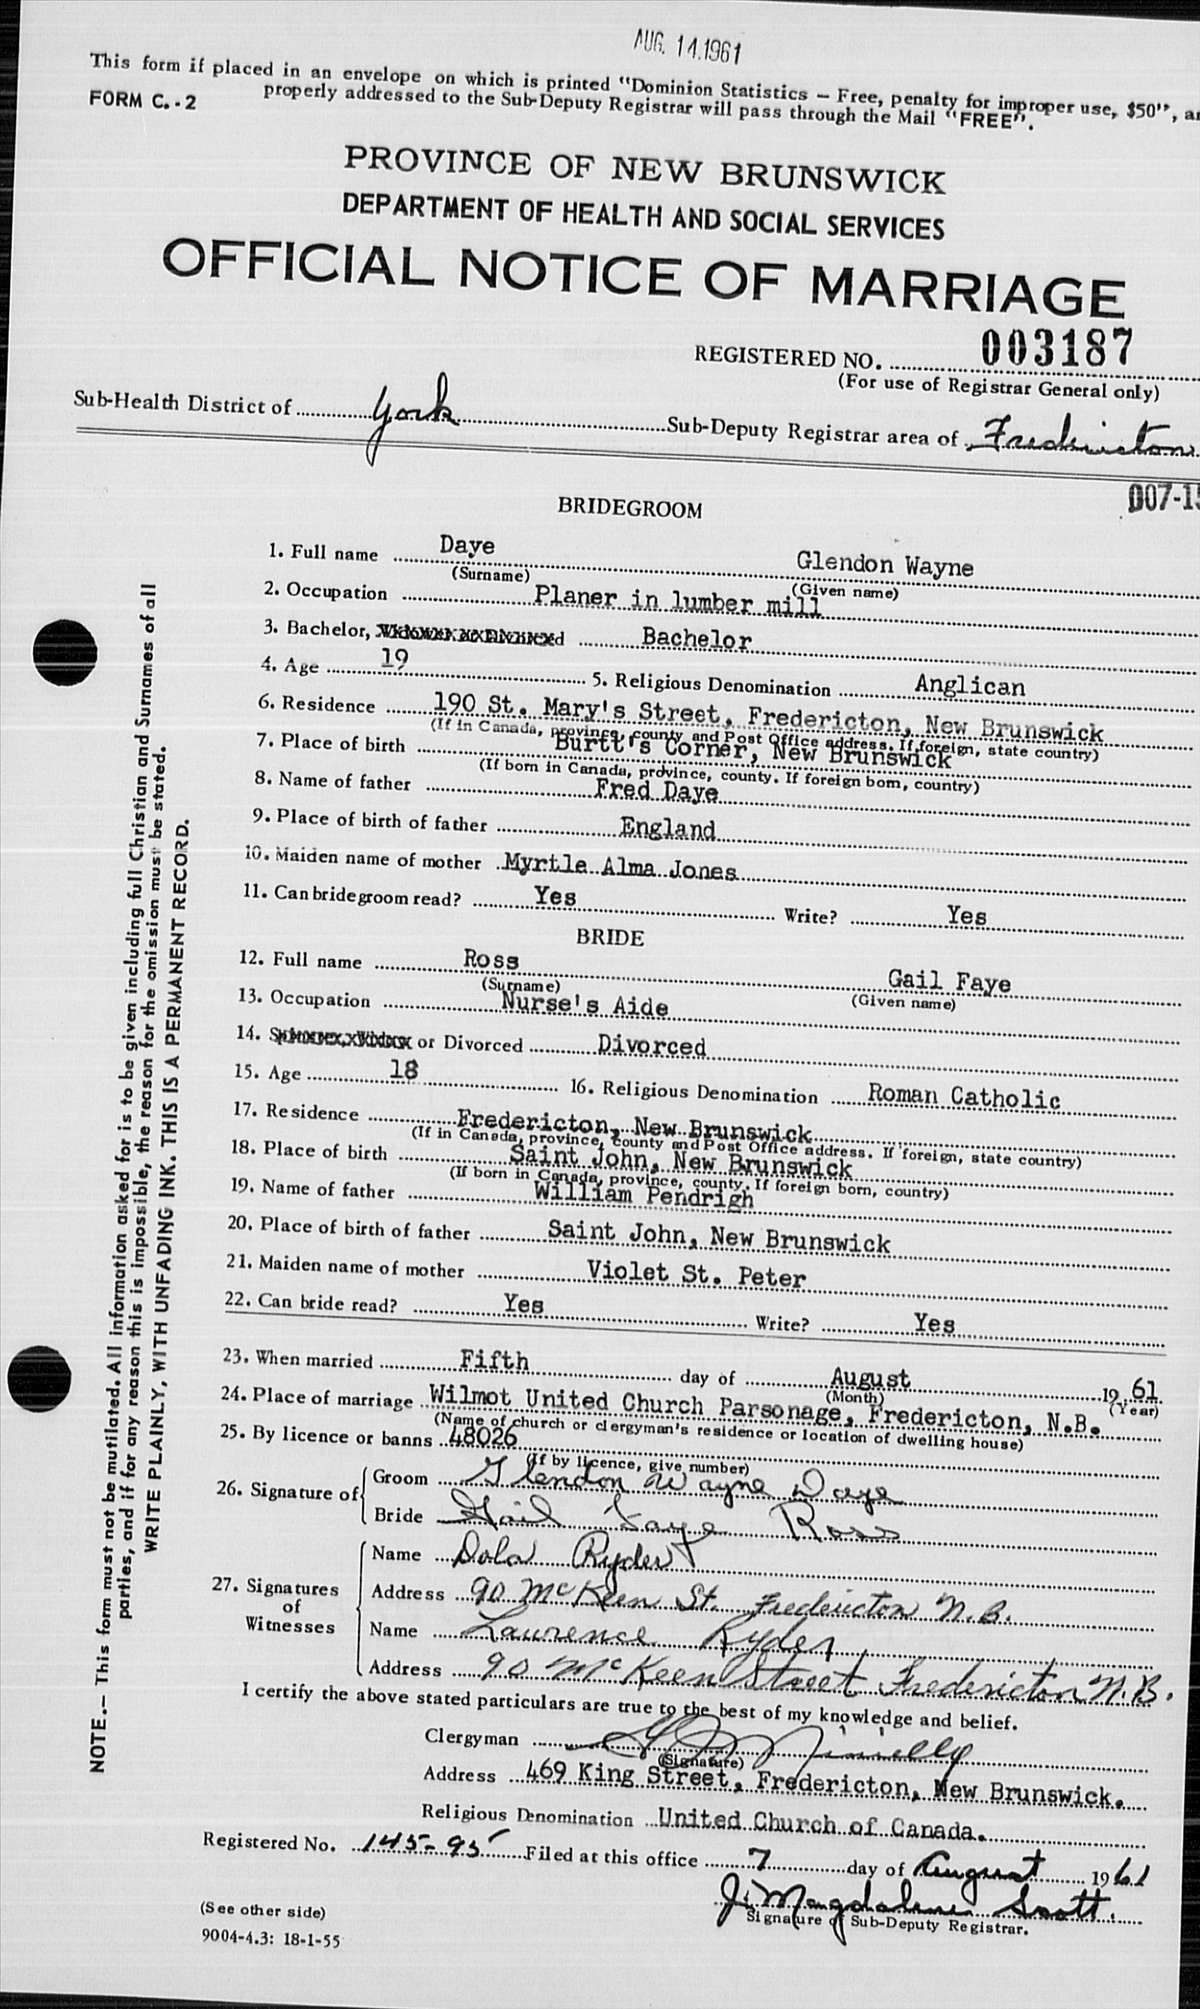 AUG. 14.1961
This form if placed in an envelope on which is printed "Dominion Statistics — Free, penalty for improper use, $50",
properly addressed to the Sub-Deputy Registrar will pass through the Mail "FREE".
FORM C.-2
PROVINCE OF NEW BRUNSWICK
DEPARTMENT OF HEALTH AND SOCIAL SERVICES
OFFICIAL NOTICE OF MARRIAGE
REGISTERED NO. 003187
(For use of Registrar General only)
Sub-Health District of York Sub-Deputy Registrar area of Fredericton
007-15
BRIDEGROOM
1. Full name Daye Glendon Wayne
(Surname) (Given name)
2. Occupation Planer in lumber mill
3. Bachelor, Bachelor
4. Age 19 5. Religious Denomination Anglican
6. Residence 190 St. Mary's Street, Fredericton, New Brunswick
(If in Canada, province, county and Post Office address. If foreign, state country)
7. Place of birth Burtt's Corner, New Brunswick
(If born in Canada, province, county. If foreign born, country)
8. Name of father Fred Daye
9. Place of birth of father England
10. Maiden name of mother Myrtle Alma Jones
11. Can bridegroom read? Yes Write? Yes
BRIDE
12. Full name Ross Gail Faye
(Surname) (Given name)
13. Occupation Nurse's Aide
14. or Divorced Divorced
15. Age 18 16. Religious Denomination Roman Catholic
17. Residence Fredericton, New Brunswick
(If in Canada, province, county and Post Office address. If foreign, state country)
18. Place of birth Saint John, New Brunswick
(If born in Canada, province, county. If foreign born, country)
19. Name of father William Pendrigh
20. Place of birth of father Saint John, New Brunswick
21. Maiden name of mother Violet St. Peter
22. Can bride read? Yes Write? Yes
23. When married Fifth day of August 19 61
(Month) (Year)
24. Place of marriage Wilmot United Church Parsonage, Fredericton, N.B.
(Name of church or clergyman's residence or location of dwelling house)
25. By licence or banns 48026
(If by licence, give number)
26. Signature of
Groom Glendon Wayne Daye
Bride Gail Faye Ross
27. Signatures of Witnesses
Name Dola Ryder
Address 90 McKeen St. Fredericton N.B.
Name Laurence Ryder
Address 90 McKeen Street Fredericton N.B.
I certify the above stated particulars are true to the best of my knowledge and belief.
Clergyman
(Signature)
Address 469 King Street, Fredericton, New Brunswick.
Religious Denomination United Church of Canada.
Registered No. 145-95 Filed at this office 7 day of August 1961
J. Magdalene Scott.
Signature of Sub-Deputy Registrar.
(See other side)
9004-4.3: 18-1-55
NOTE.— This form must not be mutilated. All information asked for is to be given including full Christian and Surnames of all
parties, and if for any reason this is impossible, the reason for the omission must be stated.
WRITE PLAINLY, WITH UNFADING INK. THIS IS A PERMANENT RECORD.